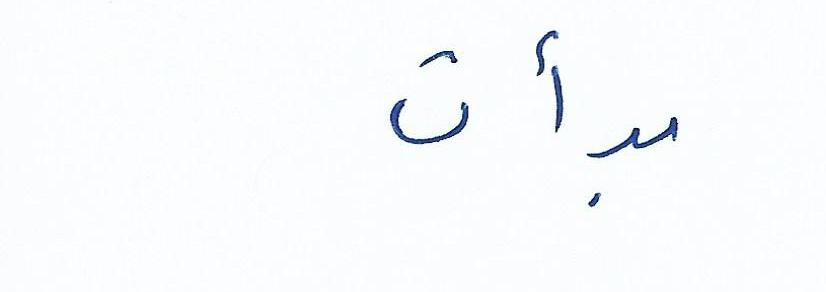 بدأت